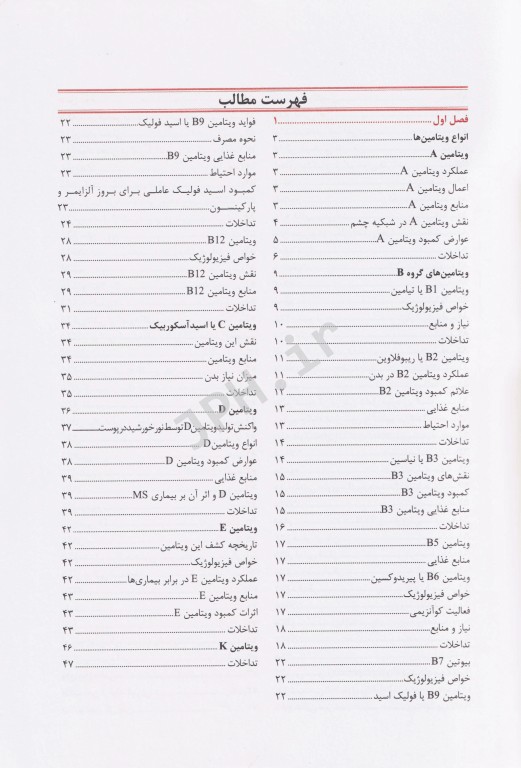 فهرست مطالب
فصل اول ... ۱
انواع ویتامین‌ها ... ۳
ویتامین A ... ۳
عملکرد ویتامین A ... ۳
اعمال ویتامین A ... ۳
منابع ویتامین A ... ۳
نقش ویتامین A در شبکیه چشم ... ۴
عوارض کمبود ویتامین A ... ۵
تداخلات ... ۶
ویتامین‌های گروه B ... ۹
ویتامین B1 یا تیامین ... ۹
خواص فیزیولوژیک ... ۹
نیاز و منابع ... ۱۰
تداخلات ... ۱۰
ویتامین B2 یا ریبوفلاوین ... ۱۱
عملکرد ویتامین B2 در بدن ... ۱۱
علائم کمبود ویتامین B2 ... ۱۲
منابع غذایی ... ۱۳
موارد احتیاط ... ۱۳
تداخلات ... ۱۴
ویتامین B3 یا نیاسین ... ۱۴
نقش‌های ویتامین B3 ... ۱۵
کمبود ویتامین B3 ... ۱۵
منابع غذایی ویتامین B3 ... ۱۵
تداخلات ... ۱۶
ویتامین B5 ... ۱۷
منابع غذایی ... ۱۷
ویتامین B6 یا پیریدوکسین ... ۱۷
خواص فیزیولوژیک ... ۱۷
فعالیت کوآنزیمی ... ۱۷
نیاز و منابع ... ۱۸
تداخلات ... ۱۸
بیوتین B7 ... ۲۲
خواص فیزیولوژیک ... ۲۲
ویتامین B9 یا فولیک اسید ... ۲۲
فواید ویتامین B9 یا اسید فولیک ... ۲۲
نحوه مصرف ... ۲۳
منابع غذایی ویتامین B9 ... ۲۳
موارد احتیاط ... ۲۳
کمبود اسید فولیک عاملی برای بروز آلزایمر و
پارکینسون ... ۲۳
تداخلات ... ۲۴
ویتامین B12 ... ۲۸
خواص فیزیولوژیک ... ۲۸
نقش ویتامین B12 ... ۲۹
منابع ویتامین B12 ... ۲۹
تداخلات ... ۳۱
ویتامین C یا اسید آسکوربیک ... ۳۴
نقش این ویتامین ... ۳۴
منابع ویتامین ... ۳۴
میزان نیاز بدن ... ۳۵
تداخلات ... ۳۵
ویتامین D ... ۳۶
واکنش تولید ویتامین D توسط نور خورشید در پوست ... ۳۷
انواع ویتامین D ... ۳۸
عوارض کمبود ویتامین D ... ۳۸
منابع غذایی ... ۳۹
ویتامین D و اثر آن بر بیماری MS ... ۳۹
تداخلات ... ۳۹
ویتامین E ... ۴۲
تاریخچه کشف این ویتامین ... ۴۲
خواص فیزیولوژیک ... ۴۲
عملکرد ویتامین E در برابر بیماری‌ها ... ۴۲
منابع ویتامین E ... ۴۳
اثرات کمبود ویتامین E ... ۴۳
تداخلات ... ۴۳
ویتامین K ... ۴۶
تداخلات ... ۴۷
JPH.ir